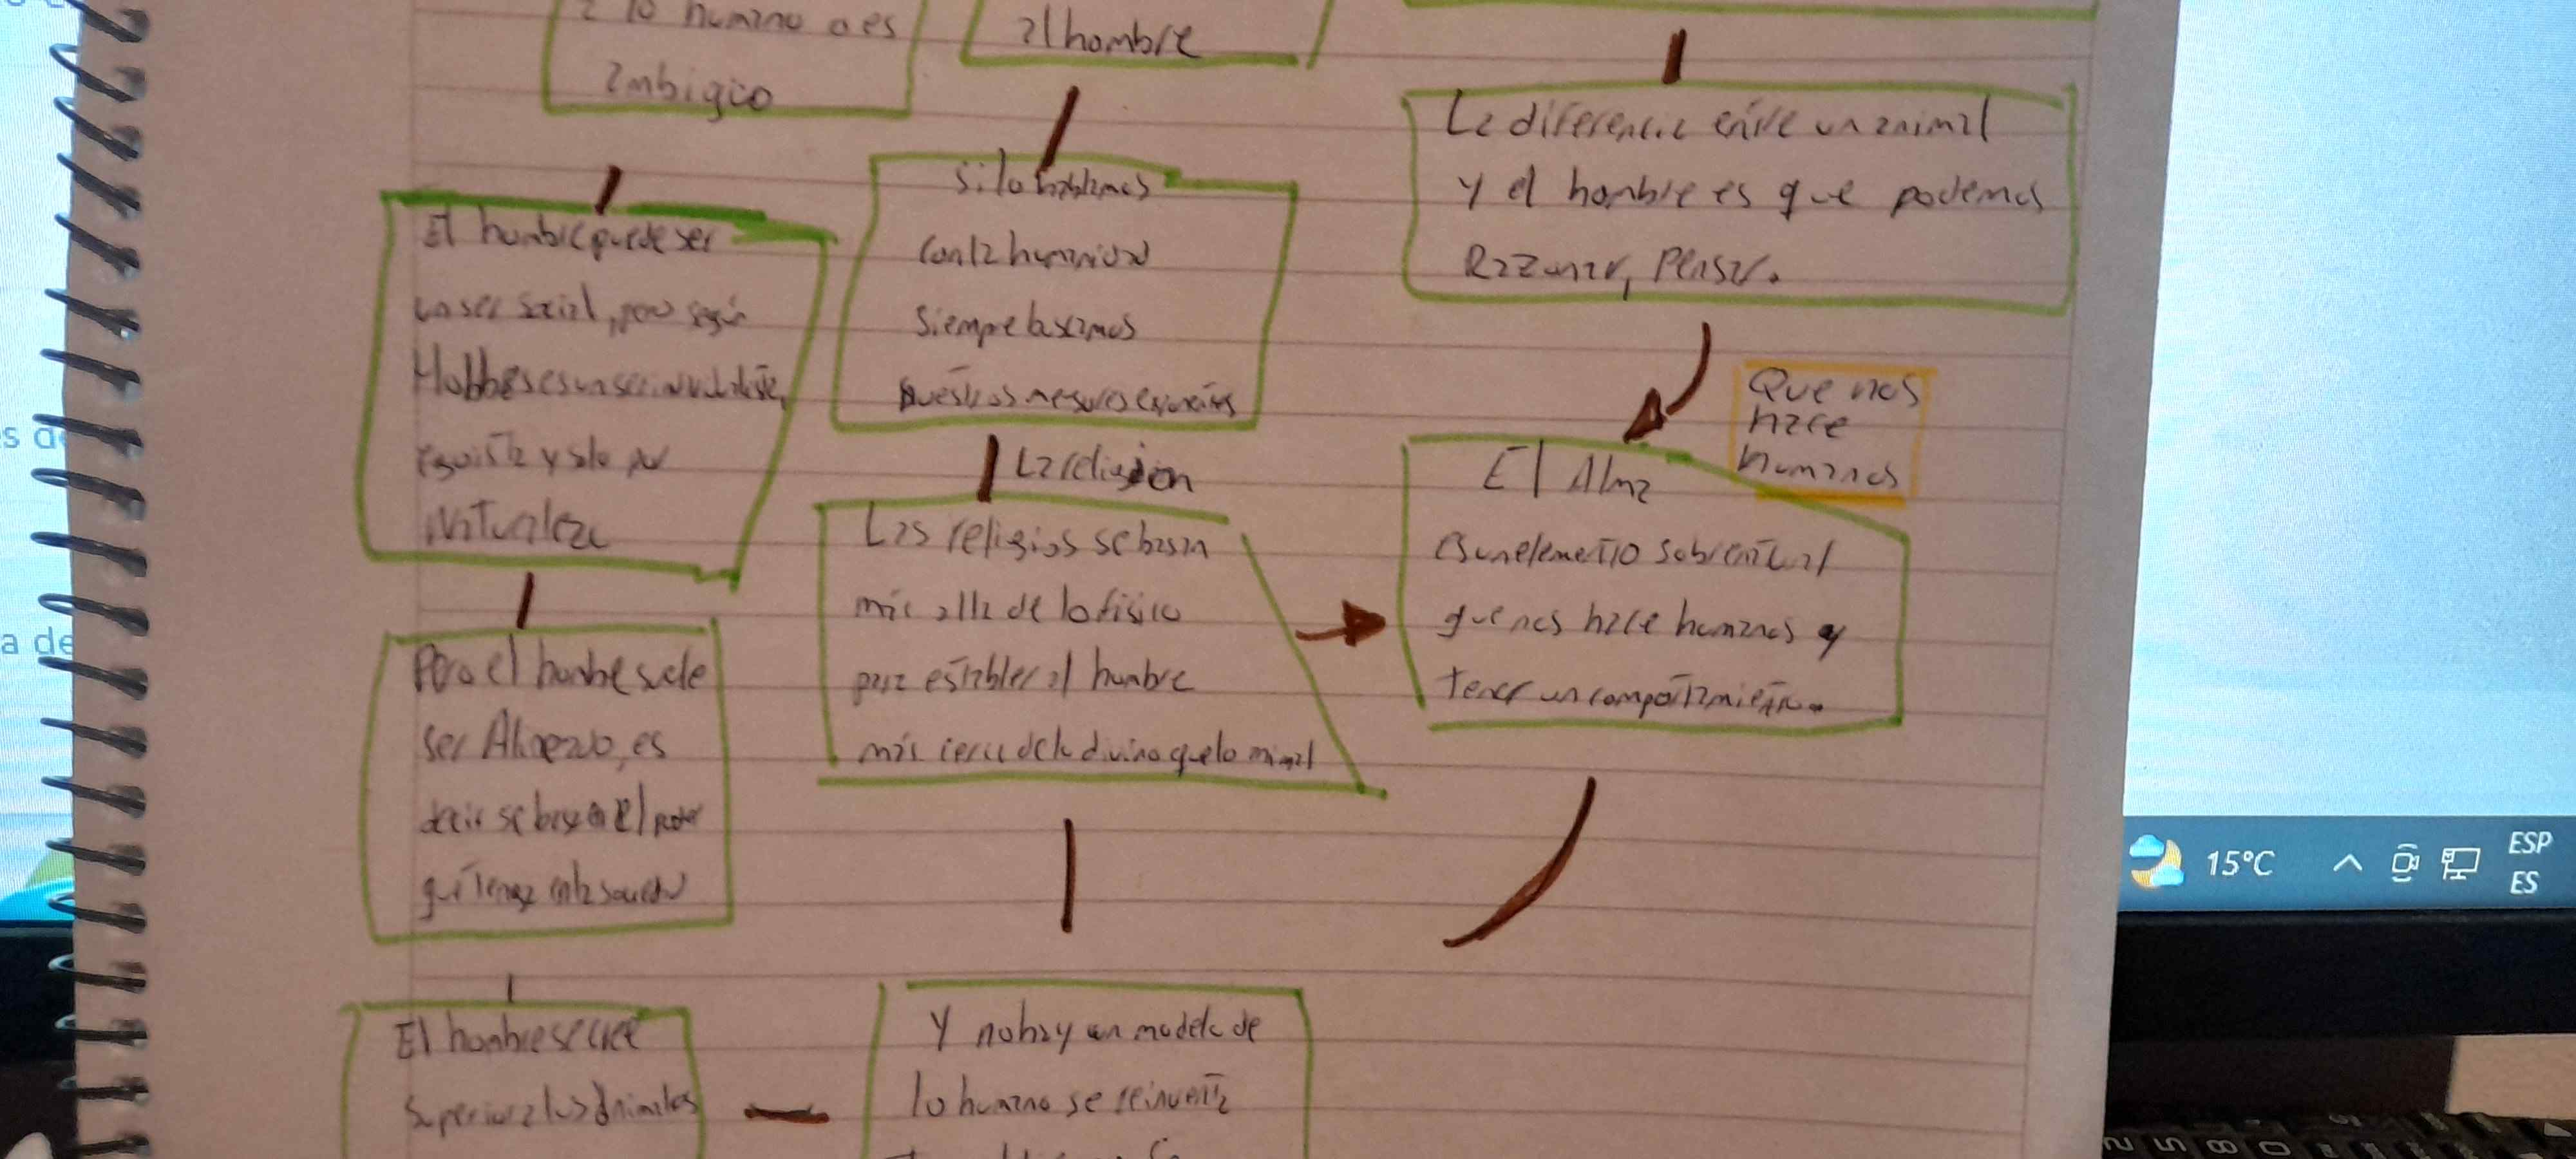 a lo humano o es
ambiguo
al hombre
La diferencia entre un animal
y el hombre es que podemos
Razonar, Pensar.
El hombre puede ser
un ser social, pero según
Hobbes es un ser individualista,
egoista y solo por
Naturaleza
si lo hablamos
con la humanidad
siempre buscamos
nuestros mejores
La religion
Que nos
hace
humanos
Las religios se basan
más alla de lo fisico
para establer al hombre
más cerca de lo divino que lo
El Alma
es un elemento
que nos hace humanos y
tener un comportamiento.
Pero el hombre suele
ser, es
decir se basa en el poder
que tenga en la sociedad
El hombre se cree
superior a los animales
Y no hay un modelo de
lo humano se reinventa
s de
a de
15°C
ESP
ES